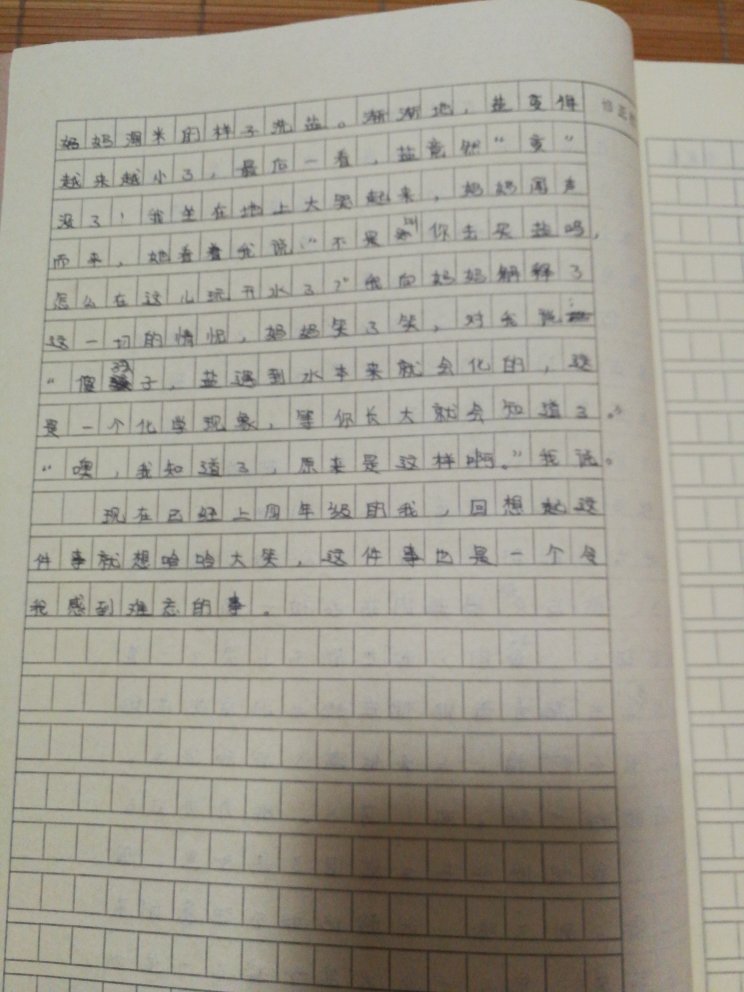 妈妈淘米的样子洗盐。渐渐地，盐变得
越来越小了，最后一看，盐竟然“变”
没了！我坐在地上大哭起来，妈妈闻声
而来，她看着我说：“不是叫你去买盐吗，
怎么在这儿玩开水了？”我向妈妈解释了
这一切的情况，妈妈笑了笑，对我说：
“傻孩子，盐遇到水本来就会化的，这
是一个化学现象，等你长大就会知道了。”
“噢，我知道了，原来是这样啊。”我说。
现在已经上四年级的我，回想起这
件事就想哈哈大笑，这件事也是一个令
我感到难忘的事。